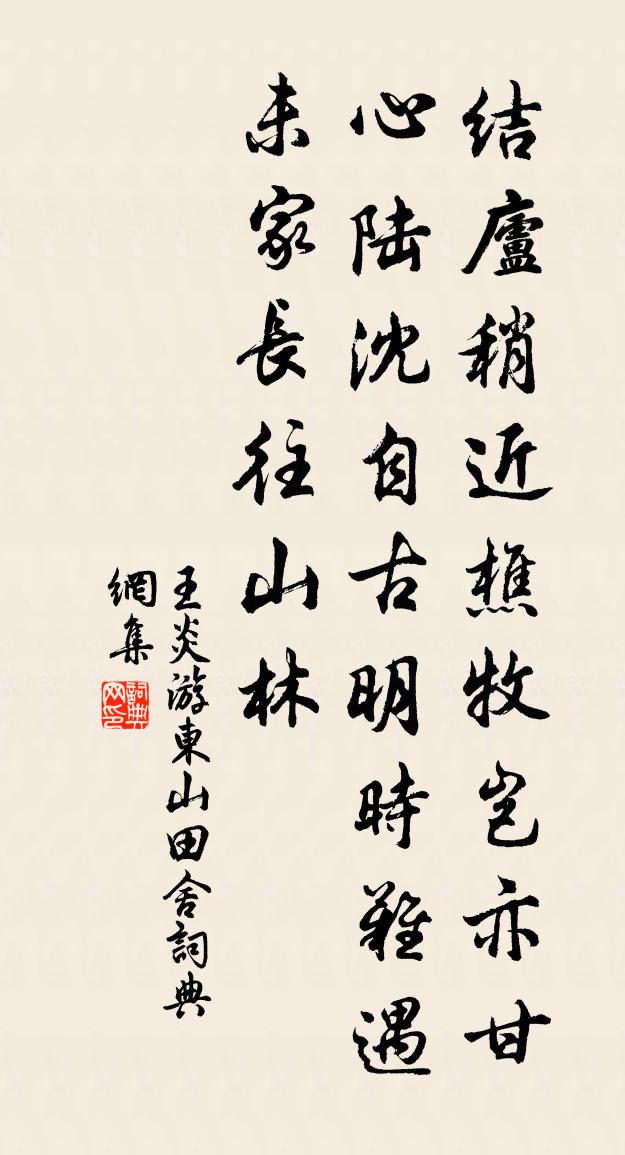 结廬稍近樵牧岂亦甘
心陆沈自古明時難遇
未家長往山林
王炎游東山田舍詞典
網集
詞典網印